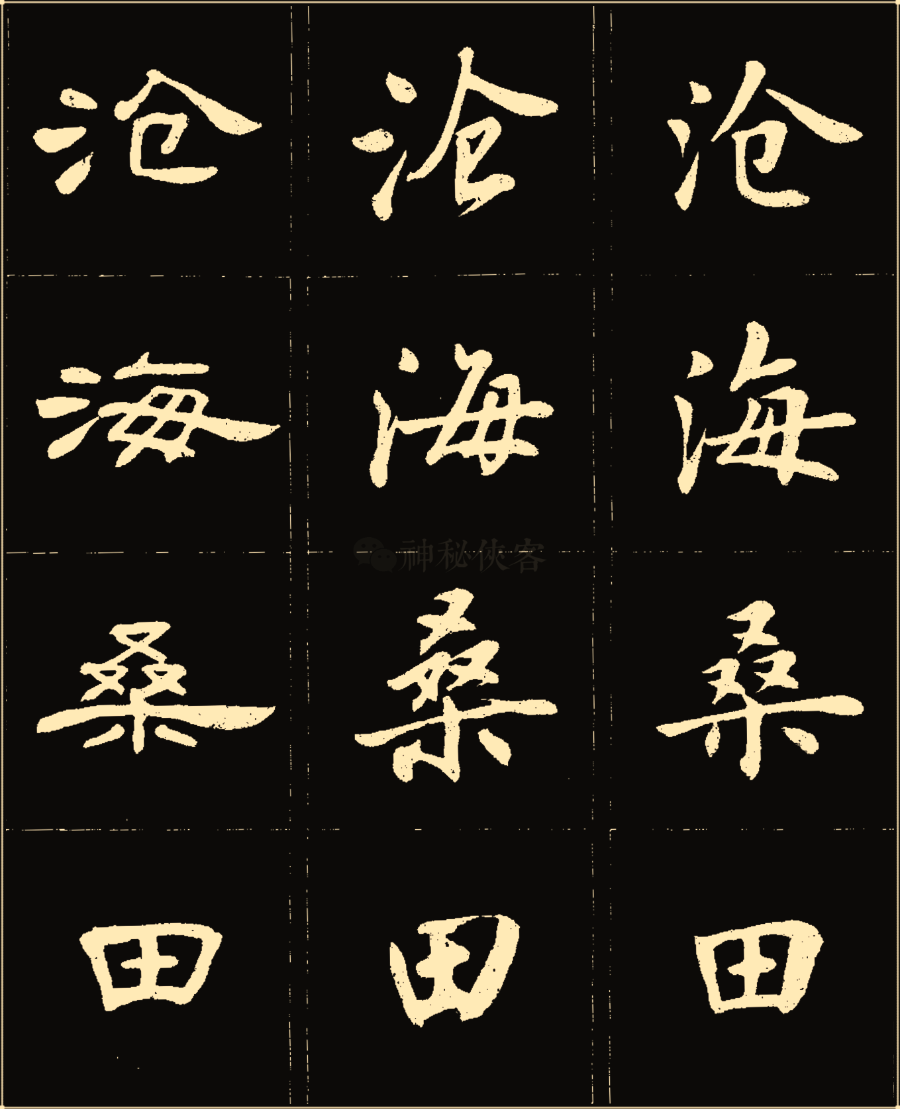 沧 沧 沧
海 海 海
桑 桑 桑
田 田 田
神秘侠客